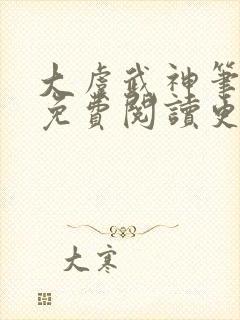 大虞武神筆
免費閱讀史
大寒